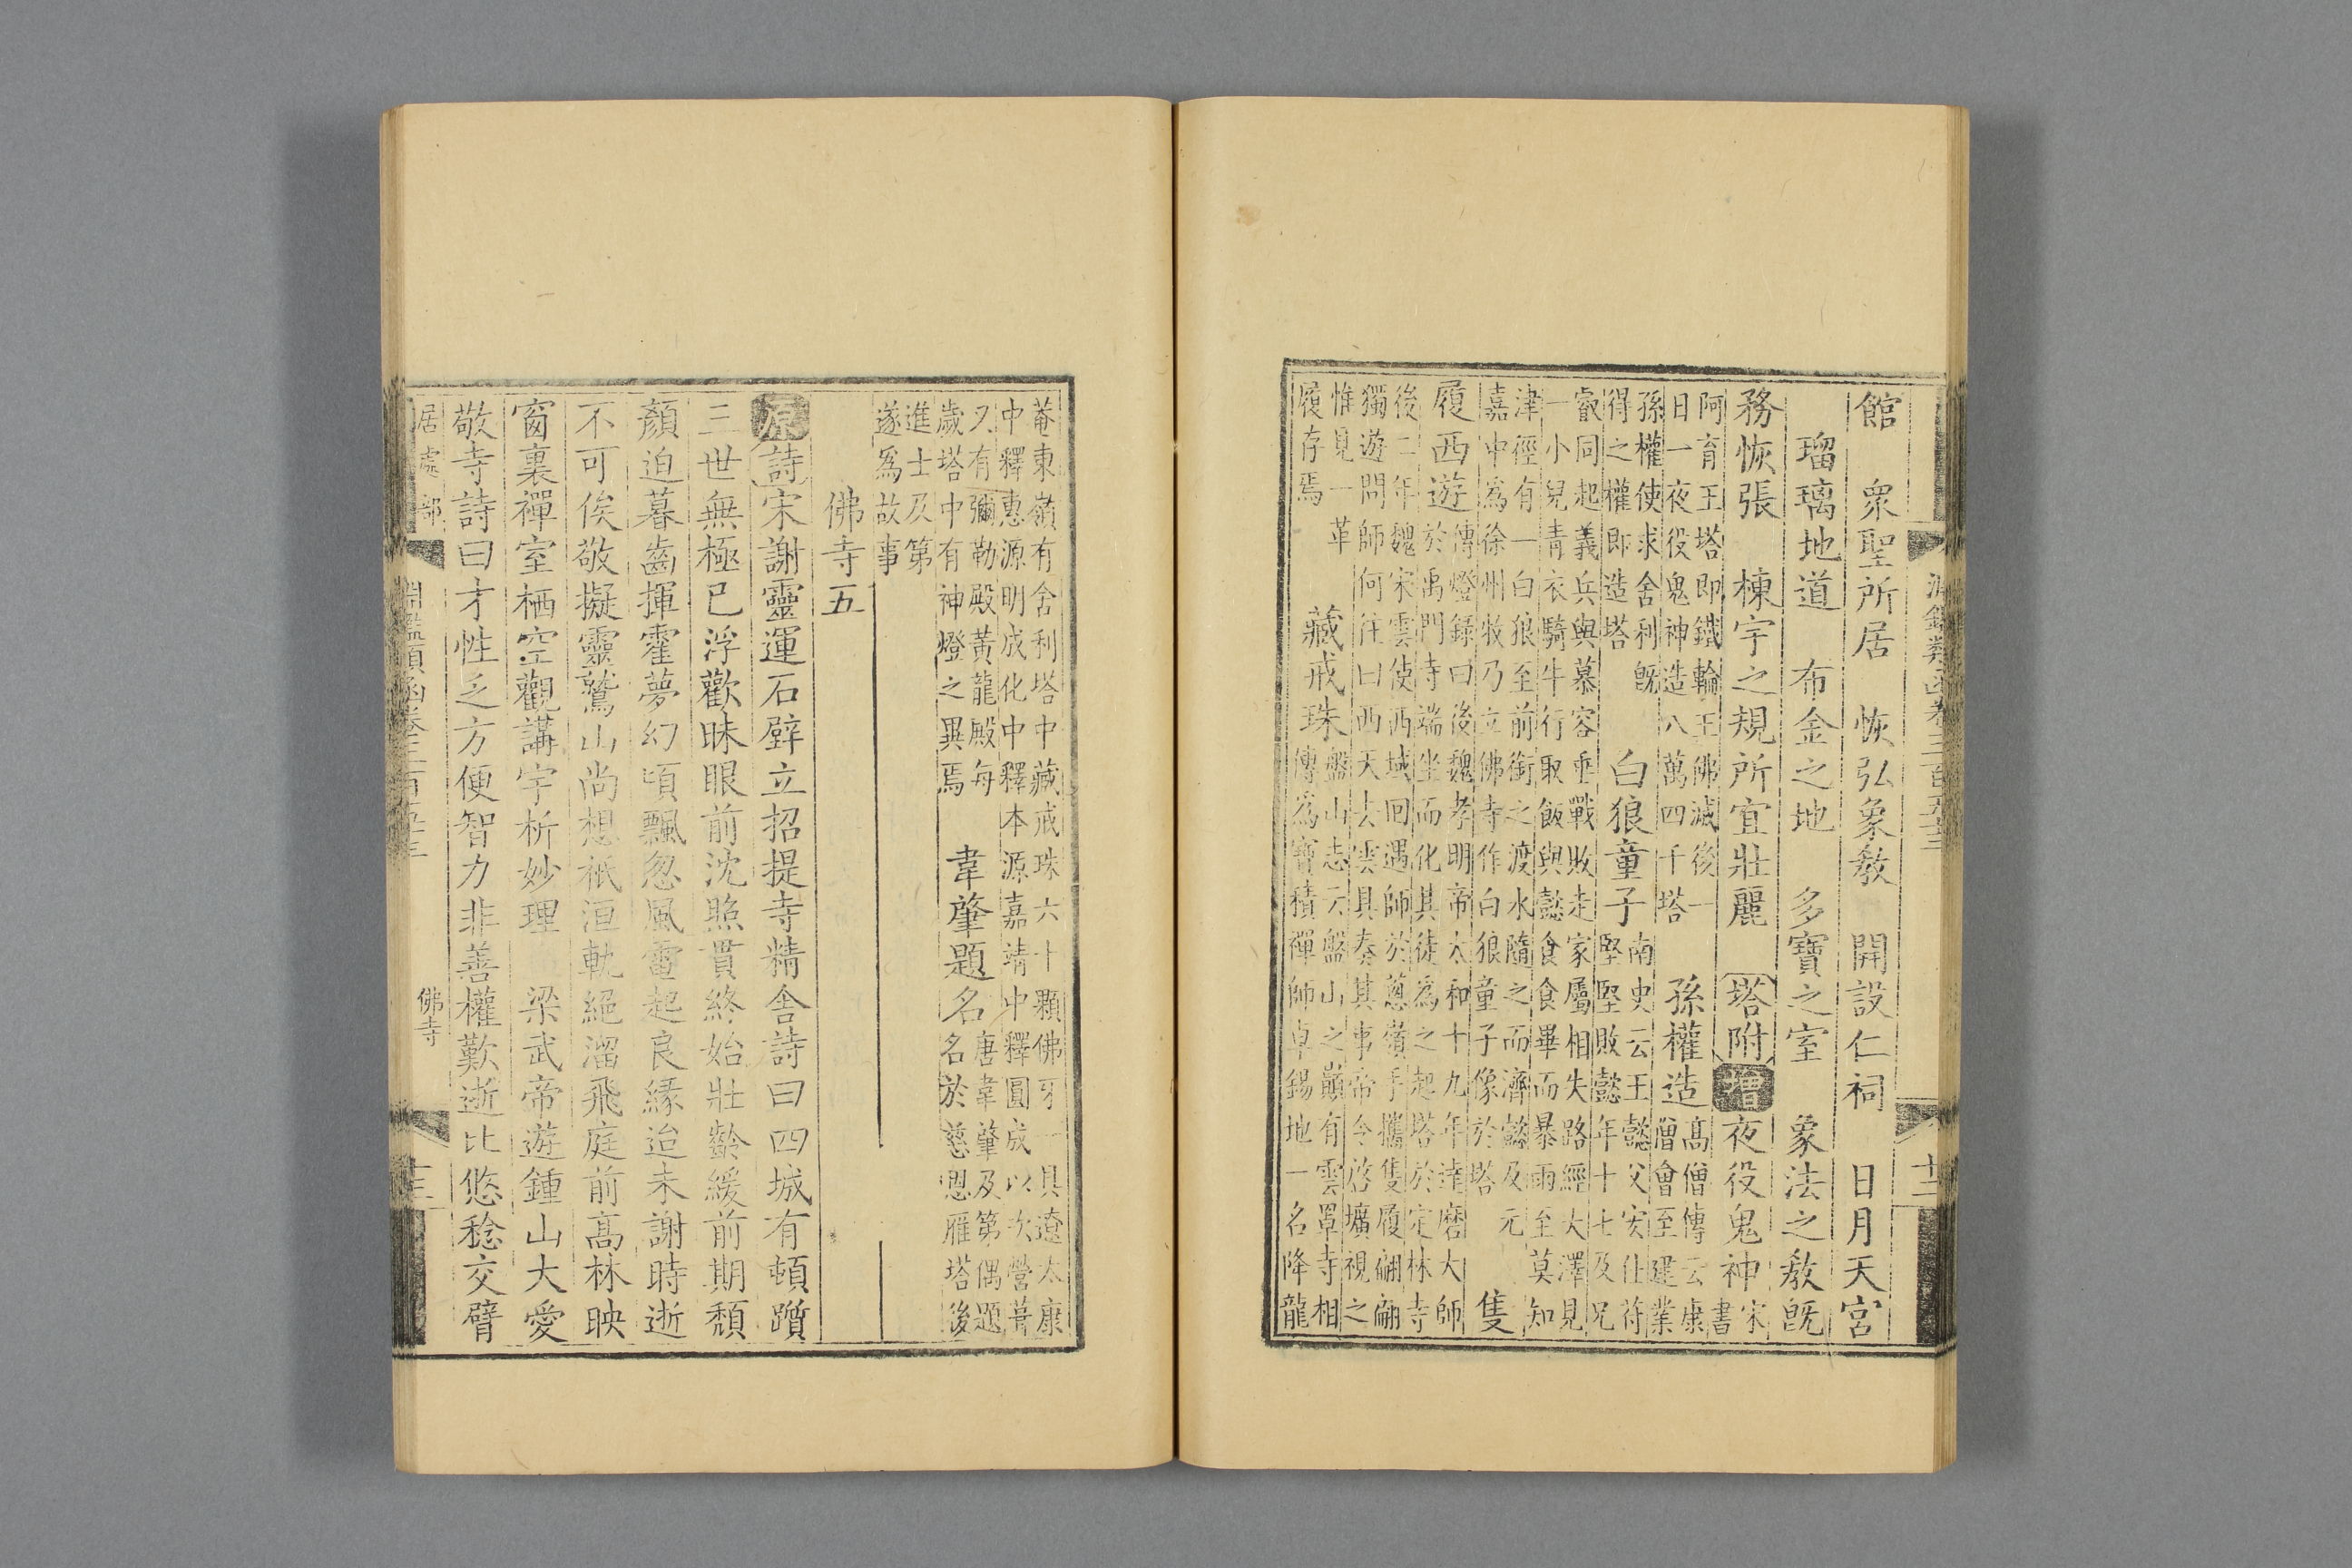 淵鑑類函卷三百五十三 十二
館 衆聖所居 恢弘象敎 開設仁祠 日月天宮
瑠璃地道 布金之地 多寶之室 象法之敎旣
務恢張 棟宇之規所宜壯麗 塔附 增 夜役鬼神 宋
書
阿育王塔即鐵輪王佛滅後一
日一夜役鬼神造八萬四千塔
孫權造
高僧傳云康
僧會至建業
孫權使求舍利旣
得之權即造塔
白狼童子
南史云王懿父宏仕苻
堅堅敗懿年十七及兄
叡同起義兵與慕容垂戰敗走家屬相失路經大澤見
一小兒青衣騎牛行取飯與懿食食畢而暴雨至莫知
津徑有一白狼至前銜之渡水隨之而濟懿及元
嘉中爲徐州牧乃立佛寺作白狼童子像於塔
隻
履西遊
傳燈錄曰後魏孝明帝太和十九年達磨大師
於禹門寺端坐而化其徒爲之起塔於定林寺
後二年魏宋雲使西域回遇師於蔥嶺手攜隻履翩翩
獨遊問師何往曰西天去雲具奏其事帝令啓壙視之
惟見一革
履存焉
藏戒珠
盤山志云盤山之巔有雲罩寺相
傳爲寶積禪師卓錫地一名降龍
菴東嶺有舍利塔中藏戒珠六十顆佛牙一具遼太康
中釋惠源明成化中釋本源嘉靖中釋圓成以次營葺
又有彌勒殿黃龍殿每
歲塔中有神燈之異焉
韋肇題名
唐韋肇及第偶題
名於慈恩雁塔後
進士及第
遂爲故事
佛寺五
原 詩 宋謝靈運石壁立招提寺精舍詩曰四城有頓躓
三世無極已浮歡昧眼前沈照貫終始壯齡緩前期頹
顏迫暮齒揮霍夢幻頃飄忽風雷起良緣迨未謝時逝
不可俟敬擬靈鷲山尚想祇洹軌絕溜飛庭前高林映
窗裏禪室栖空觀講宇析妙理 梁武帝遊鍾山大愛
敬寺詩曰才性乏方便智力非善權歎逝比悠稔交臂
居處部 淵鑑類函卷三百五十三 佛寺 十三